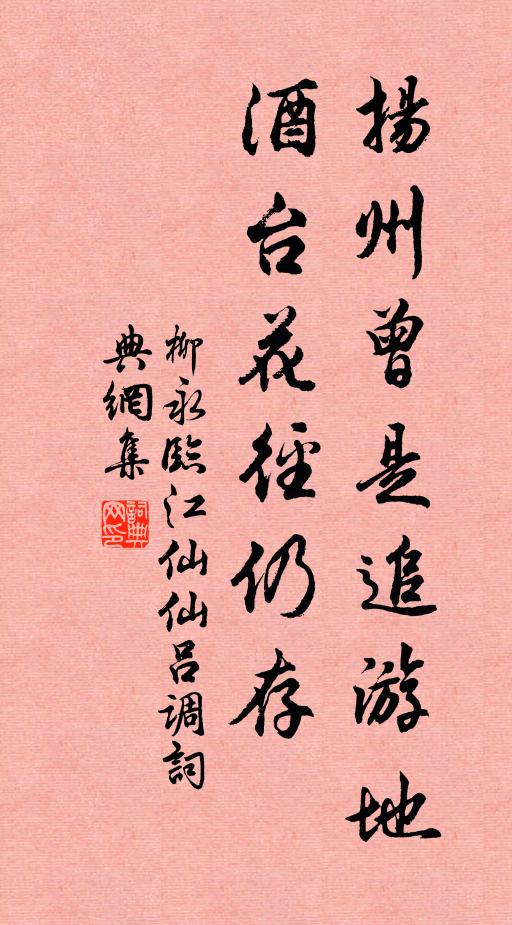 揚州曾是追游地
酒台花徑仍存
柳永臨江仙仙呂調詞
典網集
詞典网印